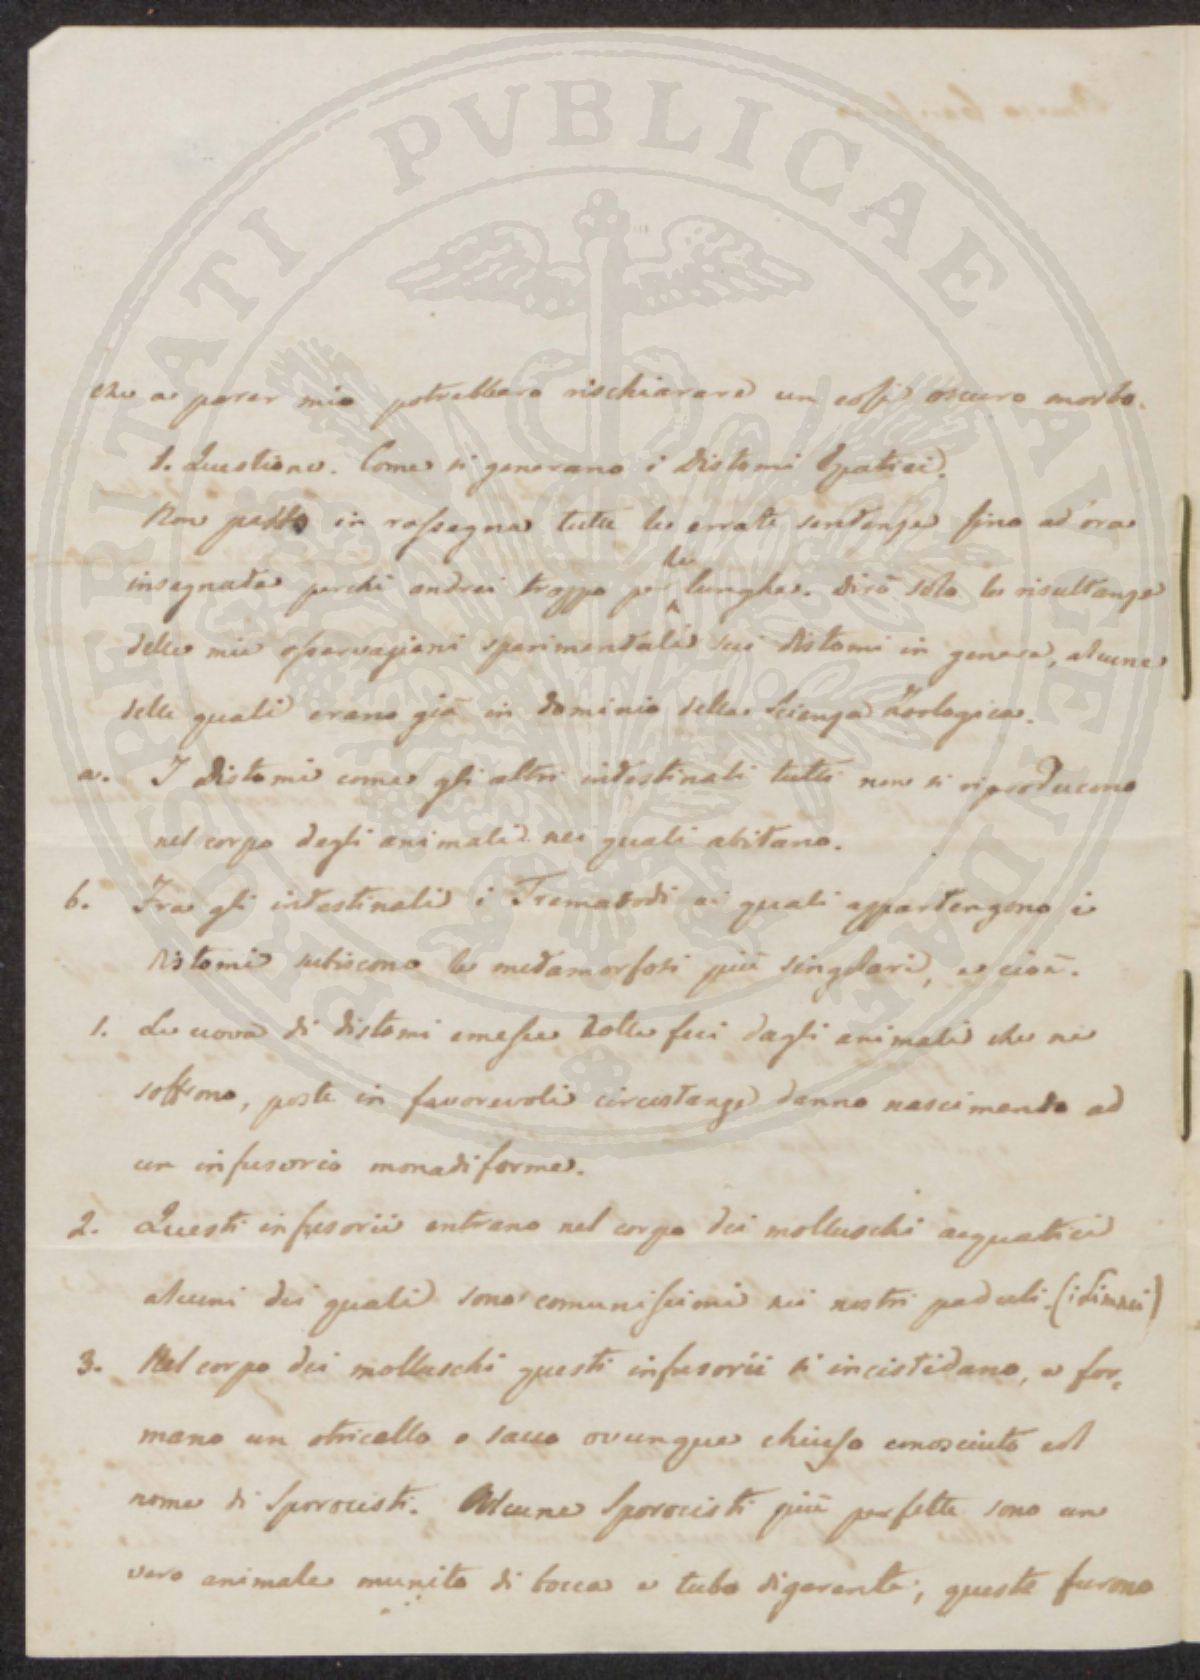 PROSPERITATI PVBLICAE AVGENDAE
che a parer mio potrebbero rischiarare un cossi oscuro morbo.
1. Questione. Come si generano i Distomi Epatici.
Non passo in rassegna tutte le errate sentenze fino ad'ora
le
insegnate perchè andrei troppo per lunghe. Dirò solo le risultanze
delle mie osservazioni sperimentali sui distomi in genere, alcune
delle quali erano già in dominio della Scienza Zoologica.
a. I Distomi come gli altri intestinali tutti non si riproducono
nel corpo degli animali nei quali abitano.
b. Fra gli intestinali i Trematodi ai quali appartengono i
Distomi subiscono le metamorfosi più singolari, e cioè.
1. Le uova di distomi emesse dalle feci dagli animali che ne
soffrono, poste in favorevoli circostanze danno nascimento ad
un infusorio monadiforme.
2. Questi infusorii entrano nel corpo dei molluschi acquatici
alcuni dei quali sono comunissimi nei nostri paduli. (i Limnei)
3. Nel corpo dei molluschi questi infusorii si incistidano, e for-
mano un otricello o sacco ovunque chiuso conosciuto col
nome di Sporocisti. Alcune Sporocisti più perfette sono un
vero animale munito di bocca e tubo digerente; queste furono